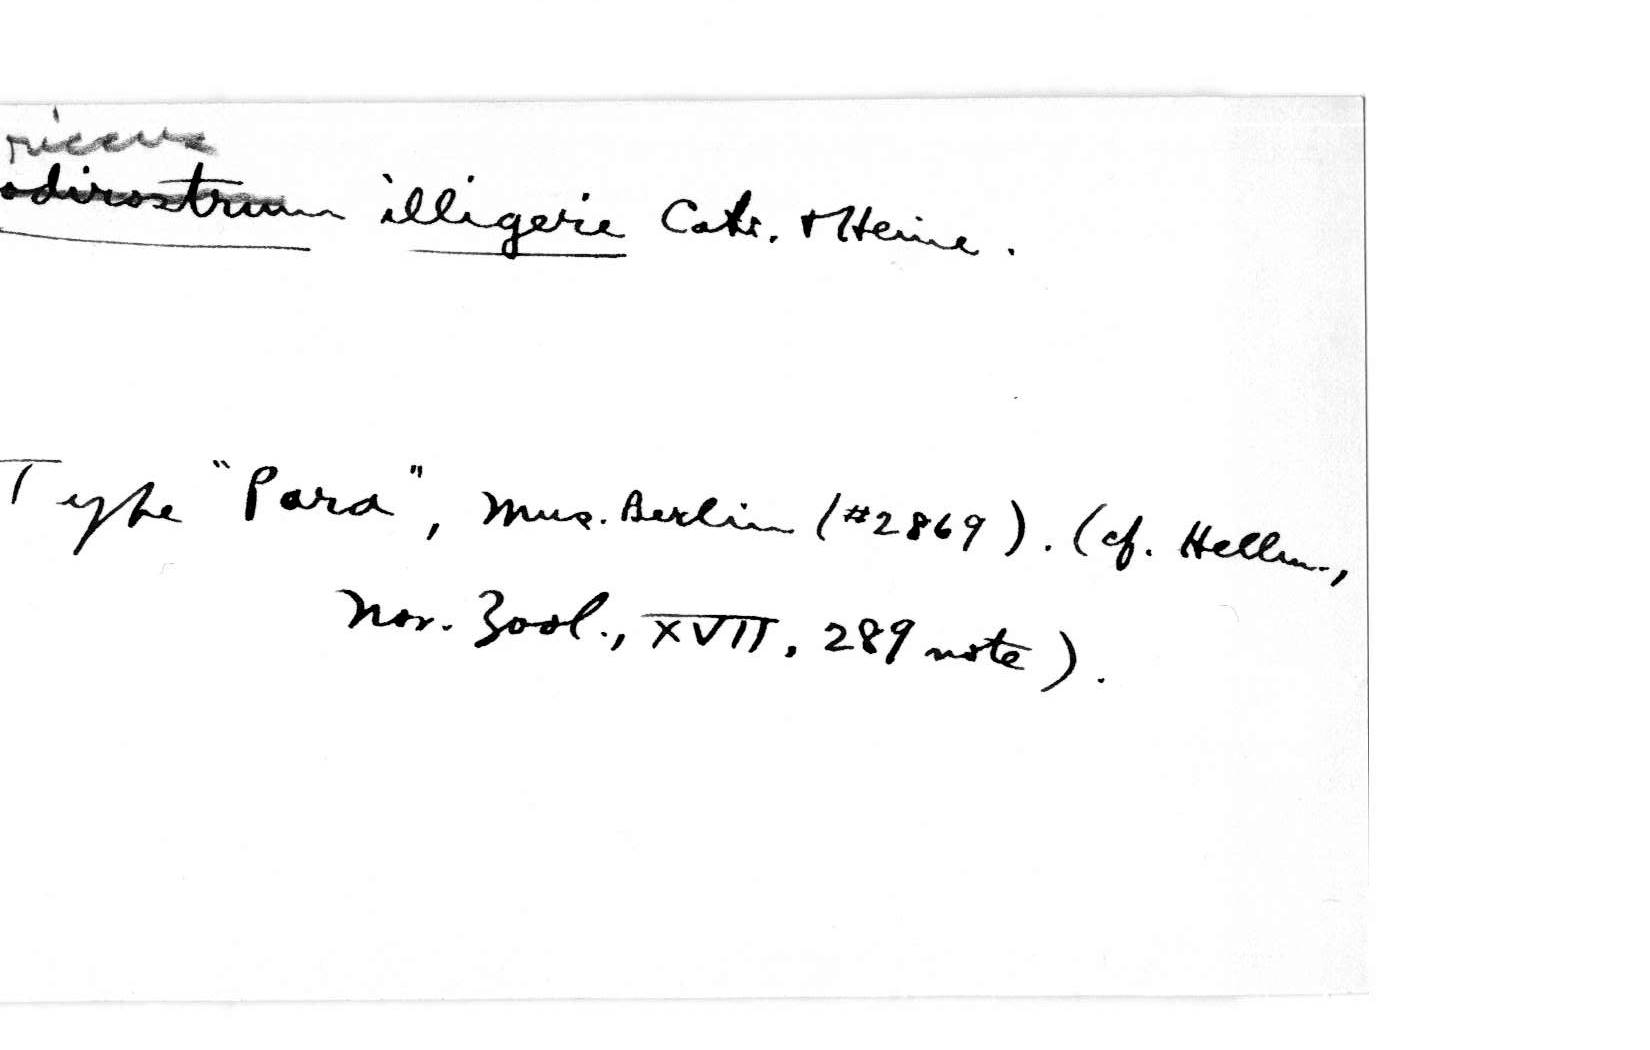 riccus
odirostrum illigeri Cab. & Heine.
Type "Pará", Mus. Berlin (#2869). (cf. Hellm.,
Nov. Zool., XVII, 289 note).